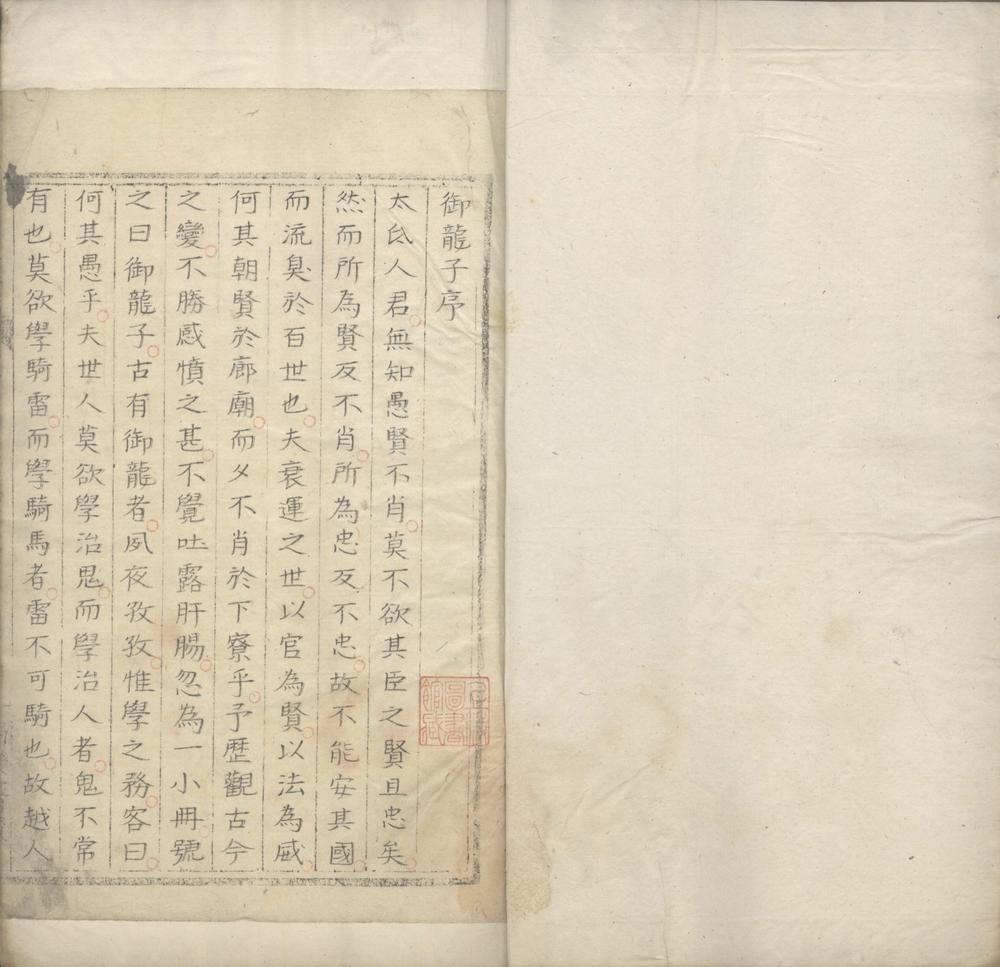 御龍子序
太氐人君無知愚賢不肖莫不欲其臣之賢且忠矣
然而所為賢反不肖所為忠反不忠故不能安其國
而流臭於百世也夫衰運之世以官為賢以法為威
何其朝賢於廊廟而夕不肖於下寮乎予歷觀古今
之變不勝感憤之甚不覺吐露肝腸忽為一小冊號
之曰御龍子古有御龍者夙夜孜孜惟學之務客曰
何其愚乎夫世人莫欲學治鬼而學治人者鬼不常
有也莫欲學騎雷而學騎馬者雷不可騎也故越人
圖書
館藏